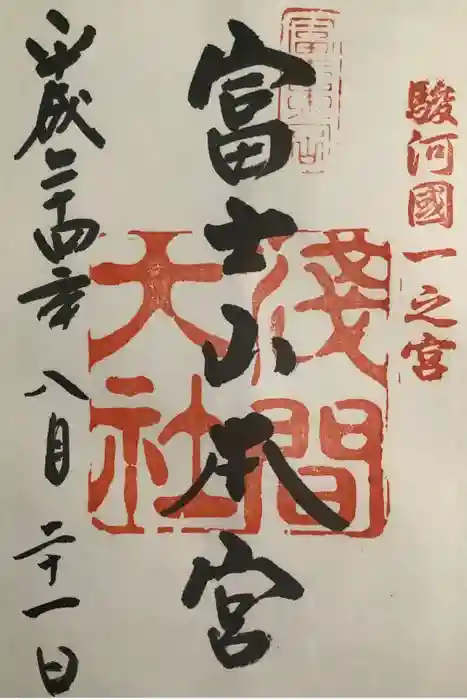 駿河國一之宮
富士山本宮
淺間大社
平成二十四年八月二十一日